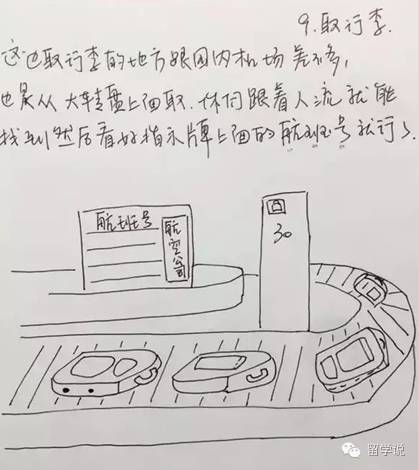 9.取行李.
这边取行李的地方跟国内机场差不多,
也是从大转盘上面取.你们跟着人流就能
找到然后看好指示牌上面的航班号就行了
航班号
航空公司
30
留学说